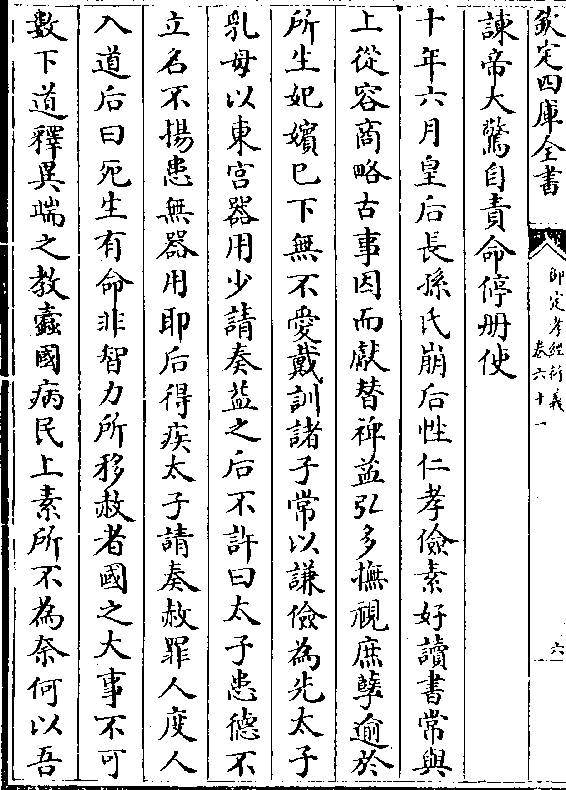 欽定四庫全書
御定孝經衍義
卷六十一
六
諫帝大驚自責命停册使
十年六月皇后長孫氏崩后性仁孝儉素好讀書常與
上從容商略古事因而獻替禆益弘多撫視庶孽逾於
所生妃嬪已下無不愛戴訓諸子常以謙儉為先太子
乳母以東宮器用少請奏益之后不許曰太子患德不
立名不揚患無器用耶后得疾太子請奏赦罪人度人
入道后曰死生有命非智力所移赦者國之大事不可
數下道釋異端之教蠹國病民上素所不為奈何以吾